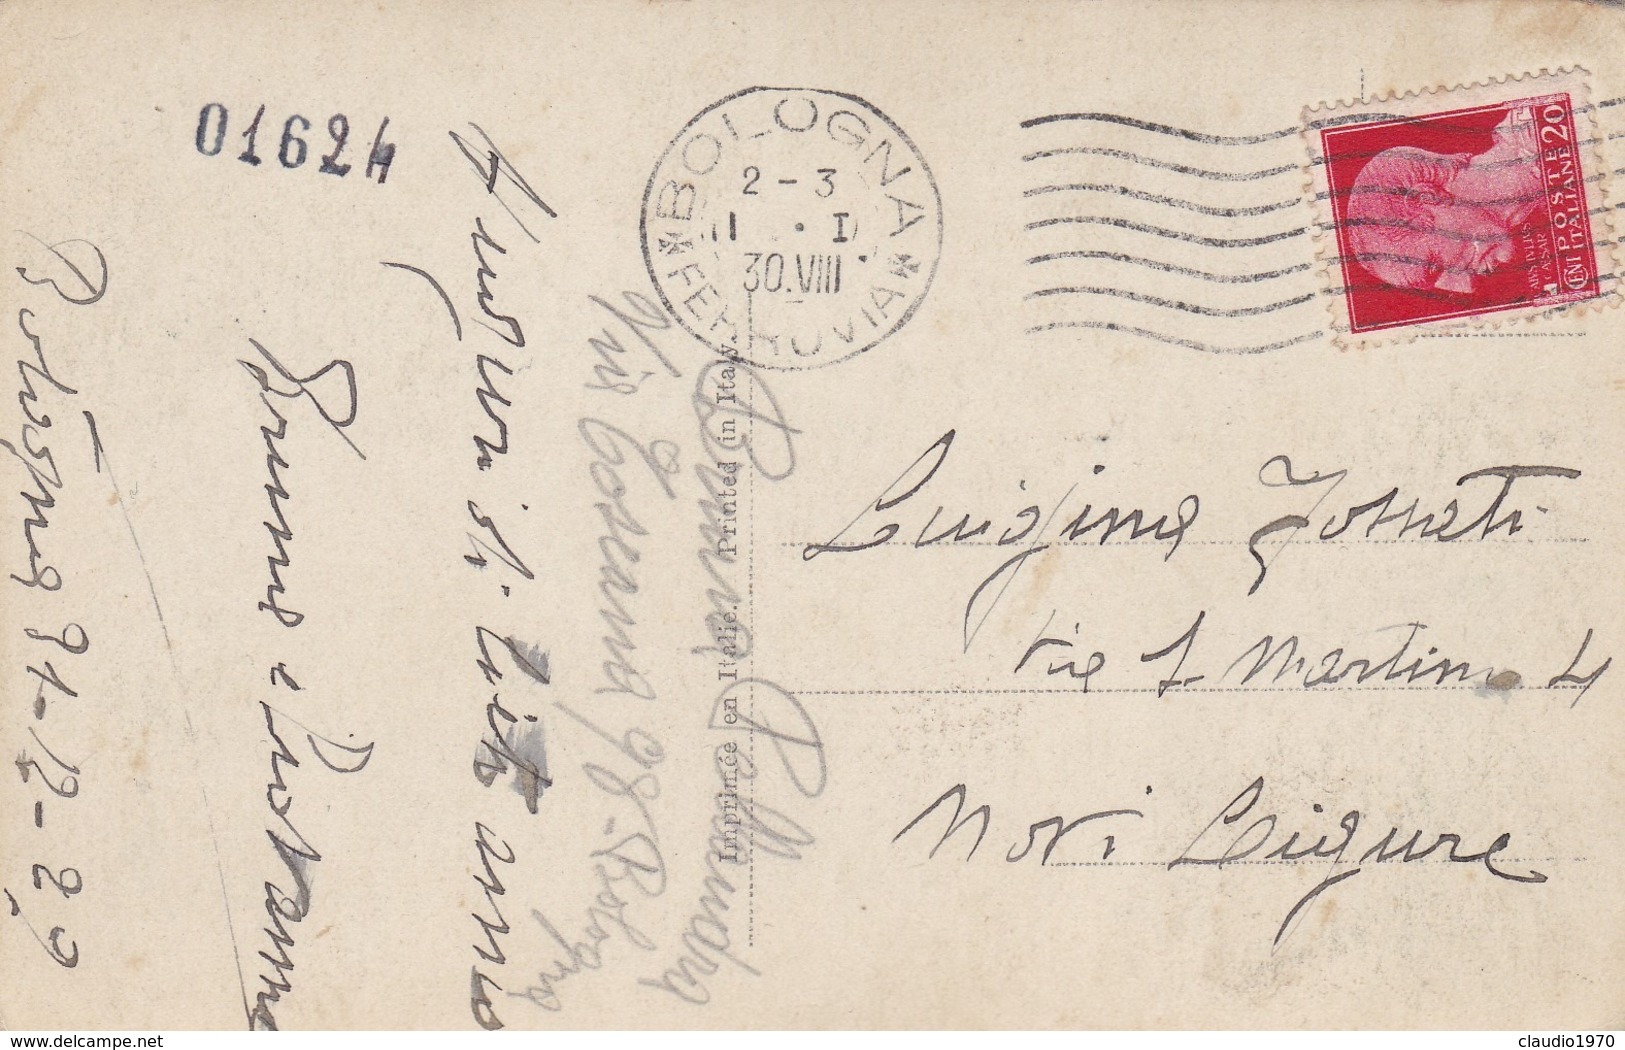 01624
BOLOGNA
2 - 3
1 . I
30.VIII
FERROVIA
POSTE
ITALIANE
CENT 20
CAESAR
Auguri di lieto anno
Bruna e
Bologna 31-12-29
Bruna
Via 98 - Bologna
Imprimée en Italie. Printed in Italy.
Luigina Tosseti
Via S. Martino 4
Novi Ligure
delcampe.net
claudio1970